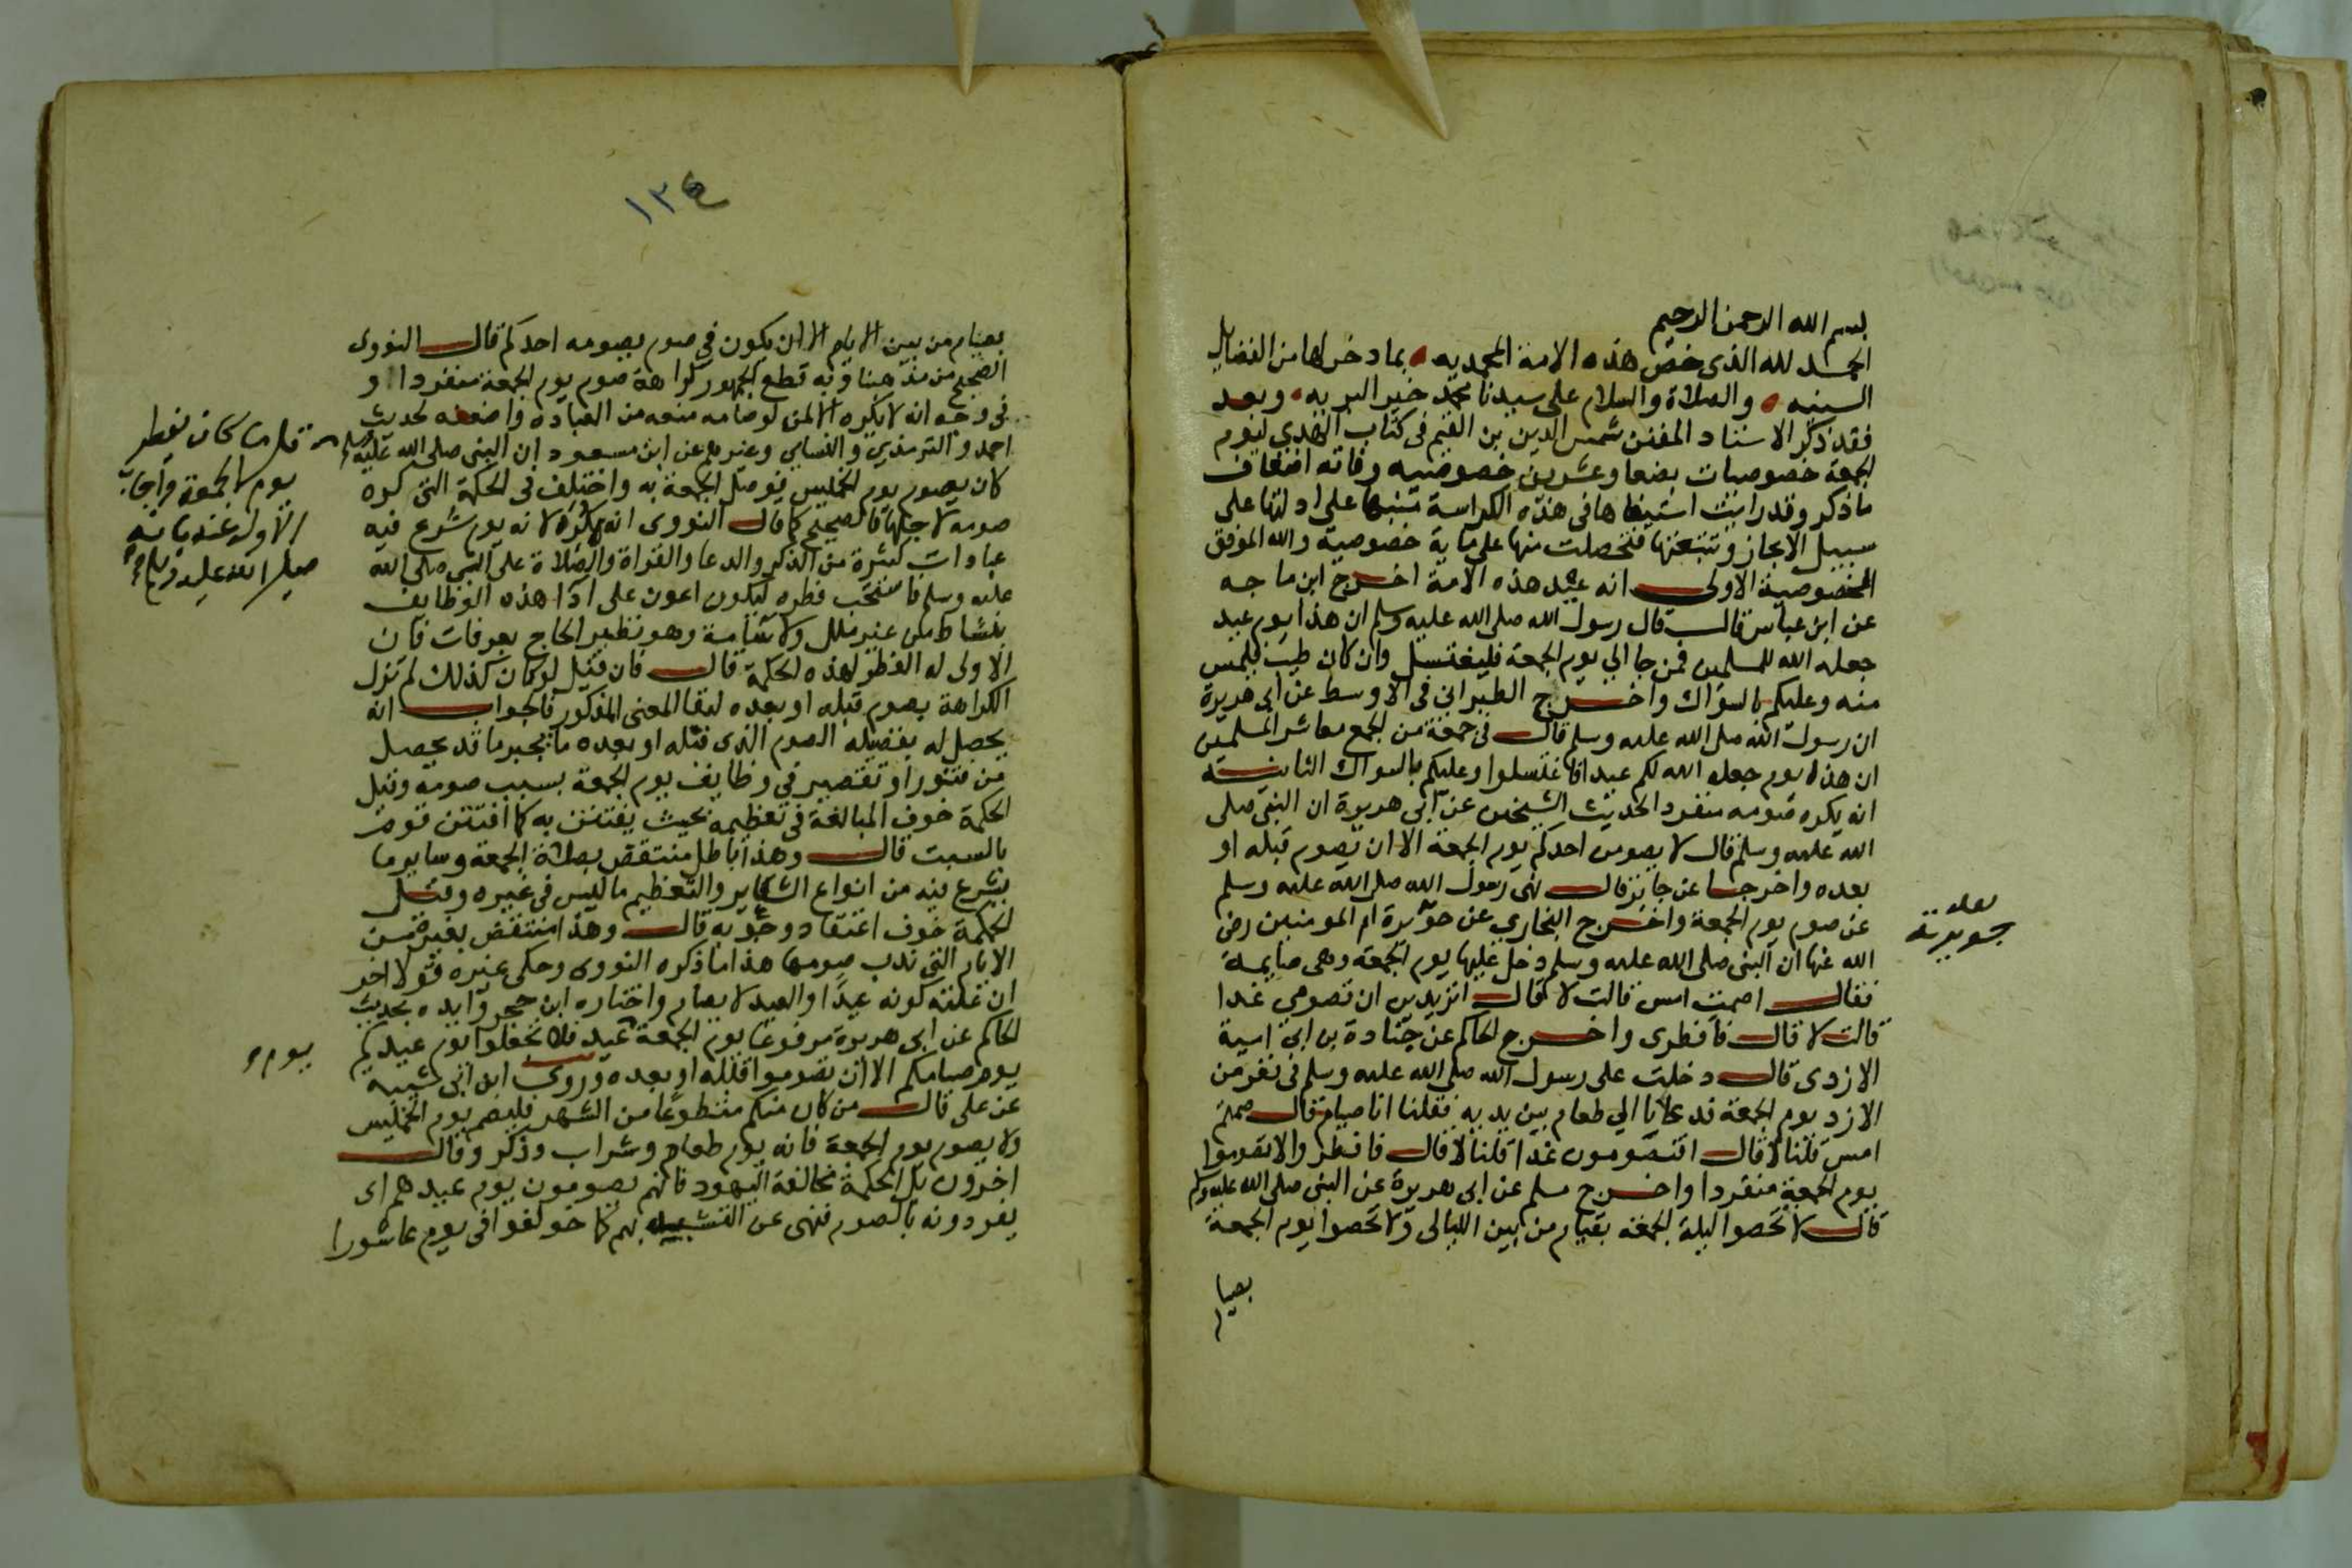 بسم الله الرحمن الرحيم
الحمد لله الذى خص هذه الامة المحمديه بما دخر لها من الفضايل
السنيه والصلاة والسلام على سيدنا محمد خير البريه وبعد
فقد ذكر الاستاد المفنن شمس الدين بن القيم فى كتاب الهدي ليوم
الجمعة خصوصيات بضعا وعشرين خصوصيه وفاته اضعاف
ما ذكر وقد رايت استيفاها فى هذه الكراسة منبها على ادلتها على
سبيل الايجاز وتتبعتها فتحصلت منها على ماية خصوصية والله الموفق
الخصوصية الاولى انه عيد هذه الامة اخرج ابن ماجه
عن ابن عباس قال قال رسول الله صلى الله عليه وسلم ان هذا يوم عيد
جعله الله للمسلمين فمن جا الي يوم الجمعة فليغتسل وان كان طيب فليمس
منه وعليكم بالسواك واخرج الطبراني فى الاوسط عن ابى هريرة
ان رسول الله صلى الله عليه وسلم قال فى جمعة من الجمع معاشر المسلمين
ان هذا يوم جعله الله لكم عيدا فاغتسلوا وعليكم بالسواك الثانية
انه يكره صومه منفردا لحديث الشيخين عن ابى هريرة ان النبى صلى
الله عليه وسلم قال لا يصومن احدكم يوم الجمعة الا ان يصوم قبله او
بعده واخرجا عن جابر قال نهى رسول الله صلى الله عليه وسلم
عن صوم يوم الجمعة واخرج البخاري عن جويرة ام المومنين رضى
الله عنها ان النبى صلى الله عليه وسلم دخل عليها يوم الجمعة وهى صايمة
فقال اصمت امس قالت لا قال اتريدين ان تصومي غدا
قالت لا قال فافطرى واخرج الحاكم عن جنادة بن ابى امية
الازدى قال دخلت على رسول الله صلى الله عليه وسلم فى نفر من
الازد يوم الجمعة فدعانا الي طعام بين يديه فقلنا انا صيام قال صمتم
امس قلنا لا قال افتصومون غدا قلنا لا قال فافطروا لا تصوموا
يوم الجمعة منفردا واخرج مسلم عن ابى هريرة عن النبى صلى الله عليه وسلم
قال لا تخصوا ليلة الجمعة بقيام من بين الليالى ولا تخصوا يوم الجمعة
بصيا
م
جويرية
١٣٤
بصيام من بين الايام الا ان يكون فى صوم يصومه احدكم قال النووى
الصحيح من مذهبنا وبه قطع الجمهور كراهة صوم يوم الجمعة منفردا و
فى وجه انه لا يكره الا لمن لو صامه منعه من العبادة واضعفه لحديث
احمد والترمذي والنساي وغيرهم عن ابن مسعود ان النبى صلى الله عليه وسلم
كان يصوم يوم الخميس فوصل الجمعة به واختلف فى الحكمة التى كره
صومه لاجلها فالصحيح كما قال النووى انه يكره لانه يوم شرع فيه
عبادات كثيرة من الذكر والدعا والقراة والصلاة على النبى صلى الله
عليه وسلم فاستحب فطره ليكون اعون على ادا هذه الوظايف
بنشاط من غير ملل ولا سامة وهو نظير الحاج بعرفات فان
الاولى له الفطر لهذه الحكمة قال فان قيل لو كان كذلك لم تزل
الكراهة بصوم قبله او بعده لبقا المعنى المذكور فالجواب انه
يحصل له بفضيلة الصوم الذى قبله او بعده ما يجبر ما قد يحصل
من فتور او تقصير فى وظايف يوم الجمعة بسبب صومه وقيل
الحكمة خوف المبالغة فى تعظيمه بحيث يفتتن به كما افتتن قوم
بالسبت قال وهذا باطل منتقض بصلاة الجمعة وساير ما
يشرع فيه من انواع الشعاير والتعظيم ما ليس فى غيره وقيل
الحكمة خوف اعتقاد وجوبه قال وهذا منتقض بغيره من
الايام التى ندب صومها هذا ما ذكره النووى وحكى غيره قولا اخر
ان علته كونه عيدا والعيد لا يصام واختاره ابن حجر وايده بحديث
الحاكم عن ابى هريرة مرفوعا يوم الجمعة عيد فلا تجعلوا يوم عيدكم
يوم صيامكم الا ان تصوموا قبله او بعده وروى ابن ابى شيبه
عن على قال من كان منكم متطوعا من الشهر فليصم يوم الخميس
ولا يصوم يوم الجمعة فانه يوم طعام وشراب وذكر وقال
اخرون بل الحكمة مخالفة اليهود فانهم يصومون يوم عيدهم اى
يفردونه بالصوم فنهى عن التشبيه بهم كما خولفوا فى يوم عاشورا
قلما كان يفطر
يوم الجمعة واجاب
الاول عنه بانه
صلى الله عليه وسلم
يوم